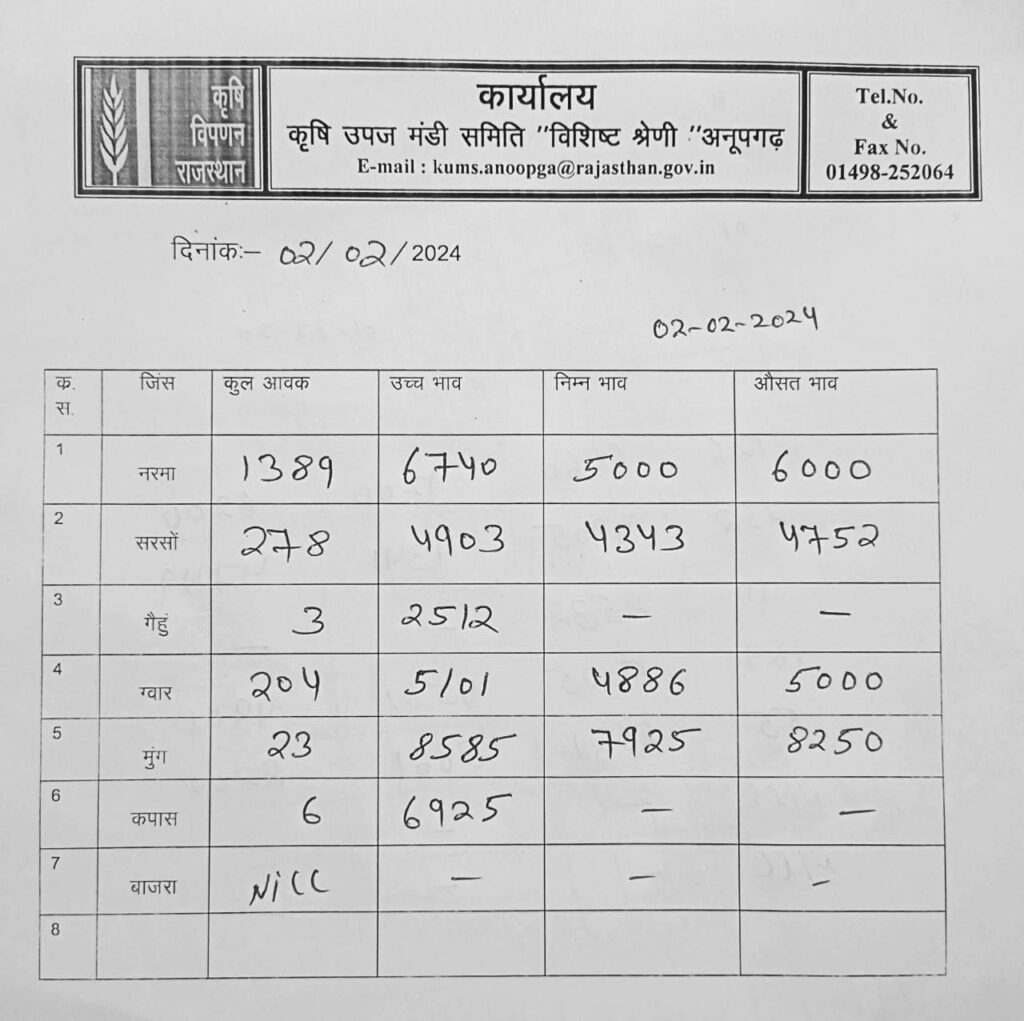 कृषि
विपणन
राजस्थान
कार्यालय
कृषि उपज मंडी समिति "विशिष्ट श्रेणी "अनूपगढ़
E-mail : kums.anoopga@rajasthan.gov.in
Tel.No.
&
Fax No.
01498-252064
दिनांकः– 02/02/2024
02-02-2024
क्र. स. जिंस कुल आवक उच्च भाव निम्न भाव औसत भाव
1 नरमा 1389 6740 5000 6000
2 सरसों 278 4903 4343 4752
3 गैहुं 3 2512 — —
4 ग्वार 204 5101 4886 5000
5 मुंग 23 8585 7925 8250
6 कपास 6 6925 — —
7 बाजरा NiLL — — –
8